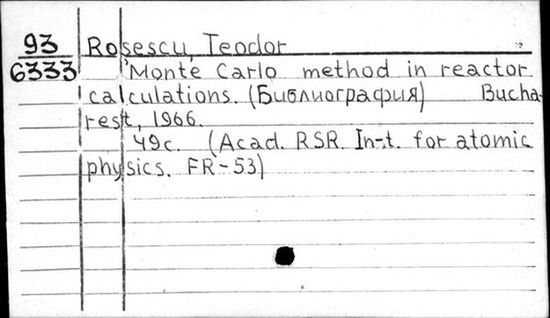 93
6333
Rosescu, Teodor
Monte Carlo method in reactor
calculations. (Библиография) Bucha-
rest, 1966.
49с. (Acad. RSR. In-t. for atomic
physics. FR-53)